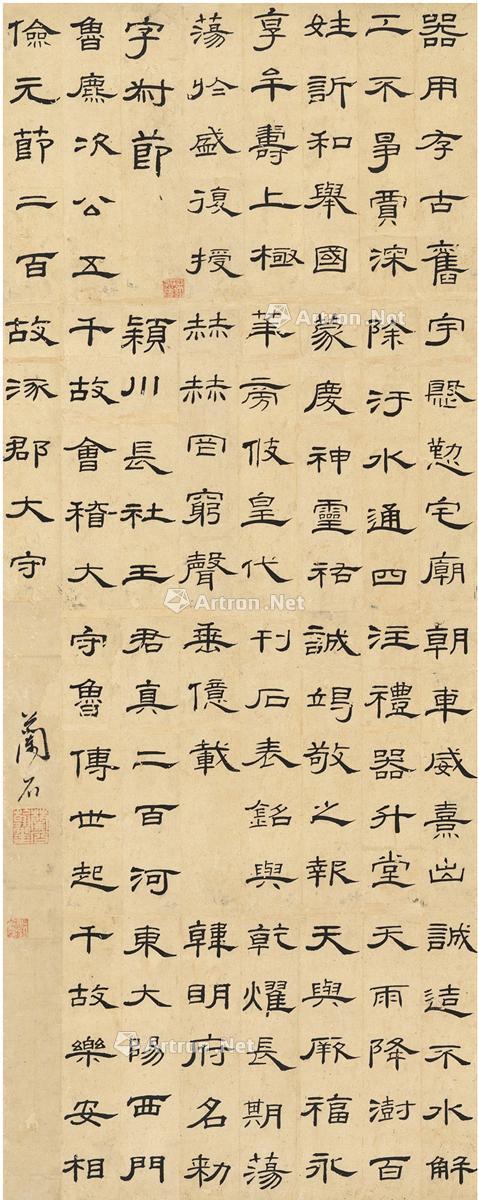 器用存古舊宇慇懃宅廟朝車威熹出誠造不水解
工不爭賈深除汙水通四注禮器升堂天雨降澍百
姓訢和舉國蒙慶神靈祐誠竭敬之報天與厥福永
享牟壽上極旁伎皇代刊石表銘與乾燿長期蕩
蕩於盛復授赫赫罔窮聲垂億載韓明府名勅
字叔節潁川長社王君真二百河東大陽西門
魯麃次公五千故會稽大守魯傅世起千故樂安相
儉元節二百故涿郡大守
蘭石
Artron.Net
Artron.Net
Artron.Net